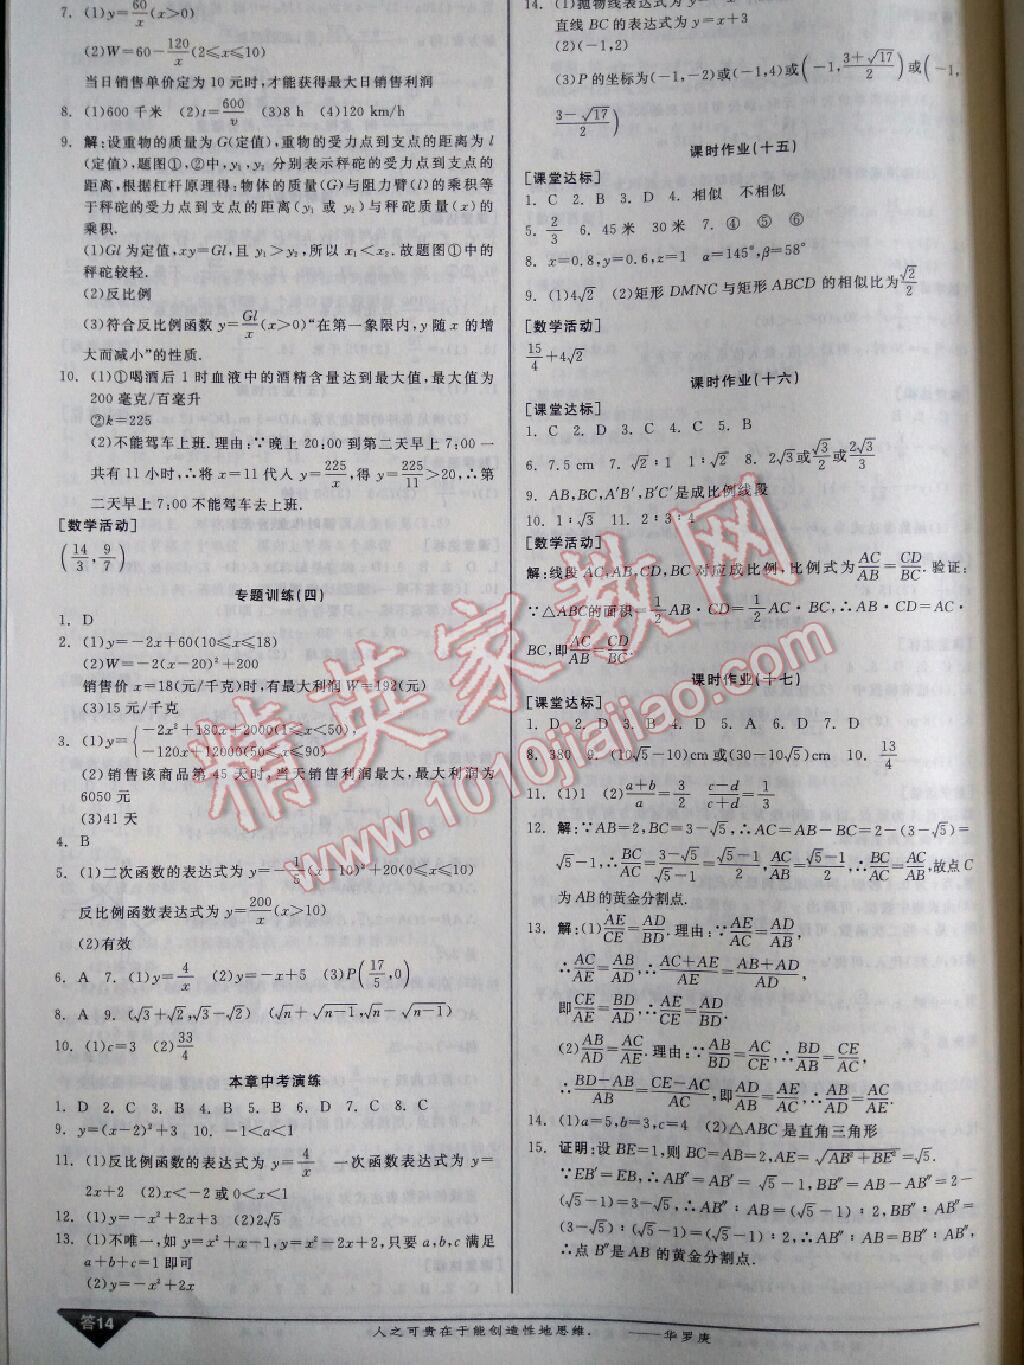 7. (1)y=60/x(x>0)
(2)W=60-120/x(2≤x≤10)
当日销售单价定为10元时,才能获得最大日销售利润
8. (1)600千米 (2)t=600/v (3)8 h (4)120 km/h
9. 解:设重物的质量为G(定值),重物的受力点到支点的距离为l
(定值),题图①,②中,y₁,y₂分别表示秤砣的受力点到支点的
距离,根据杠杆原理得:物体的质量(G)与阻力臂(l)的乘积等
于秤砣的受力点到支点的距离(y₁或y₂)与秤砣质量(x)的
乘积.
(1)Gl为定值,xy=Gl,且y₁>y₂,所以x₁<x₂.故题图①中的
秤砣较轻.
(2)反比例
(3)符合反比例函数y=Gl/x(x>0)“在第一象限内,y随x的增
大而减小”的性质.
10. (1)①喝酒后1时血液中的酒精含量达到最大值,最大值为
200毫克/百毫升
②k=225
(2)不能驾车上班.理由:∵晚上20:00到第二天早上7:00一
共有11小时,∴将x=11代入y=225/x,得y=225/11>20,∴第
二天早上7:00不能驾车去上班.
[数学活动]
(14/3,9/7)
专题训练(四)
1. D
2. (1)y=-2x+60(10≤x≤18)
(2)W=-2(x-20)²+200
销售价x=18(元/千克)时,有最大利润W=192(元)
(3)15元/千克
3. (1)y={-2x²+180x+2000(1≤x<50),
-120x+12000(50≤x≤90)
(2)销售该商品第45天时,当天销售利润最大,最大利润为
6050元
(3)41天
4. B
5. (1)二次函数的表达式为y=-1/5(x-10)²+20(0≤x≤10)
反比例函数表达式为y=200/x(x>10)
(2)有效
6. A 7. (1)y=4/x (2)y=-x+5 (3)P(17/5,0)
8. A 9. (√3+√2,√3-√2) (√n+√n-1,√n-√n-1)
10. (1)c=3 (2)33/4
本章中考演练
1. D 2. C 3. B 4. B 5. B 6. D 7. C 8. C
9. y=(x-2)²+3 10. -1<a<1
11. (1)反比例函数的表达式为y=4/x 一次函数表达式为y=
2x+2 (2)x<-2或0<x<1
12. (1)y=-x²+2x+3 (2)2√5
13. (1)不唯一,如y=x²+x-1,y=x²-2x+2,只要a,b,c满足
a+b+c=1即可
(2)y=-x²+2x
14. (1)抛物线表达式为y=
直线BC的表达式为y=x+3
(2)(-1,2)
(3)P的坐标为(-1,-2)或(-1,4)或(-1,3+√17/2)或(-1,
3-√17/2)
课时作业(十五)
[课堂达标]
1. C 2. B 3. D 4. 相似 不相似
5. 2/3 6. 45米 30米 7. ④ ⑤ ⑥
8. x=0.8,y=0.6,z=1 α=145°,β=58°
9. (1)4√2 (2)矩形DMNC与矩形ABCD的相似比为√2/2
[数学活动]
15/4+4√2
课时作业(十六)
[课堂达标]
1. C 2. D 3. C 4. C 5. B
6. 7.5 cm 7. √2∶1 1∶√2 8. 2√3或√3/2或2√3/3
9. AB,BC,A′B′,B′C′是成比例线段
10. 1∶√3 11. 2∶3∶4
[数学活动]
解:线段AC,AB,CD,BC对应成比例.比例式为AC/AB=CD/BC.验证:
∵△ABC的面积=1/2AB·CD=1/2AC·BC,∴AB·CD=AC·
BC,即AC/AB=CD/BC.
课时作业(十七)
[课堂达标]
1. D 2. D 3. B 4. D 5. A 6. D 7. D
8. 380 9. (10√5-10)cm或(30-10√5)cm 10. 13/4
11. (1)1 (2)a+b/a=3/2 c-d/c+d=1/3
12. 解:∵AB=2,BC=3-√5,∴AC=AB-BC=2-(3-√5)=
√5-1,∴BC/AC=3-√5/√5-1=√5-1/2,AC/AB=√5-1/2,∴BC/AC=AC/AB,故点C
为AB的黄金分割点.
13. 解:(1)AE/CE=AD/BD.理由:∵AE/AC=AD/AB,
∴AC/AE=AB/AD,∴AC+AE/AE=AB+AD/AD,
即CE/AE=BD/AD,∴AE/CE=AD/BD.
(2)AB/AD=AC/AE.理由:∵AB/BD=AC/CE,∴BD/AB=CE/AC,
∴BD-AB/AB=CE-AC/AC,即AD/AB=AE/AC,∴AB/AD=AC/AE.
14. (1)a=5,b=3,c=4 (2)△ABC是直角三角形
15. 证明:设BE=1,则BC=AB=2,AE=√AB²+BE²=√5.
∵EB′=EB,∴AB′=AB″=√5-1,BB″=AB-AB″=2-
(√5-1)=3-√5,∴AB″∶AB=(√5-1)∶2,BB″∶AB″=
(3-√5)∶(√5-1)=(√5-1)∶2,∴AB″∶AB=BB″∶AB″,
∴点B″是AB的黄金分割点.
精英家教网
www.1010jiajiao.com
答14
人之可贵在于能创造性地思维. ——华罗庚